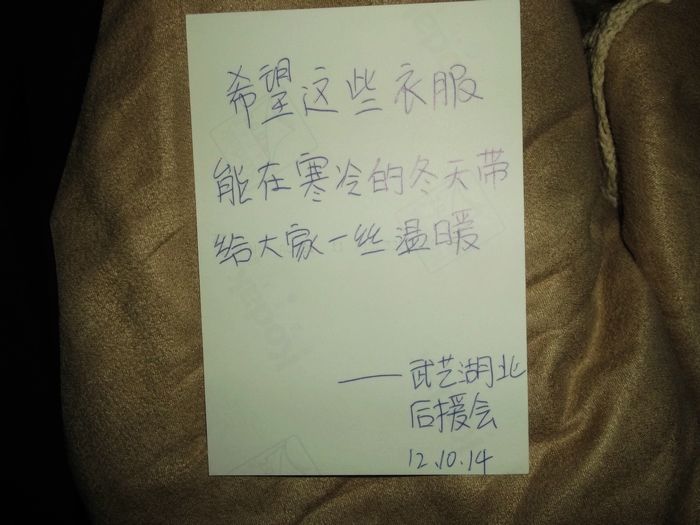 希望这些衣服
能在寒冷的冬天带
给大家一丝温暖
——武艺湖北
后援会
12.10.14